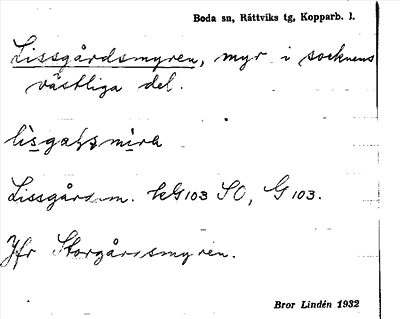 Boda sn, Rättviks tg, Kopparb. l.
Lissgårdsmyren, myr i socknens
västliga del.
Lissgårdsm. kG103 SO, G103.
Jfr Storgårdsmyren.
Bror Lindén 1932